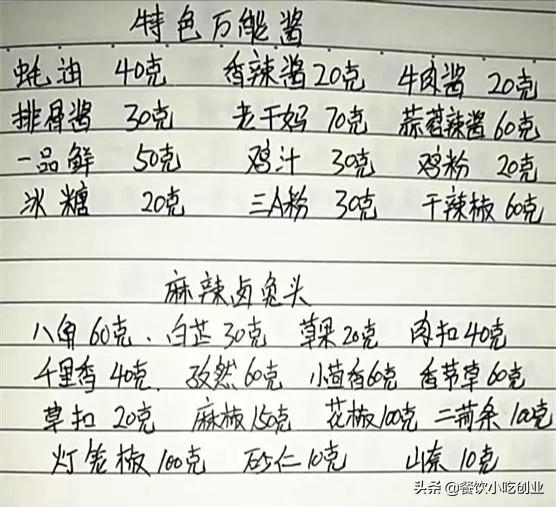 特色万能酱
蚝油 40克 香辣酱20克 牛肉酱 20克
排骨酱 30克 老干妈 70克 蒜蓉辣酱60克
一品鲜 50克 鸡汁 30克 鸡粉 20克
冰糖 20克 三A粉 30克 干辣椒60克
麻辣卤兔头
八角60克、白芷30克 草果20克 肉扣40克
千里香40克、孜然60克 小茴香60克 香茅草60克
草扣 20克 麻椒150克 花椒100克 二荊条100克
灯笼椒100克 砂仁10克 山奈10克
头条 @餐饮小吃创业